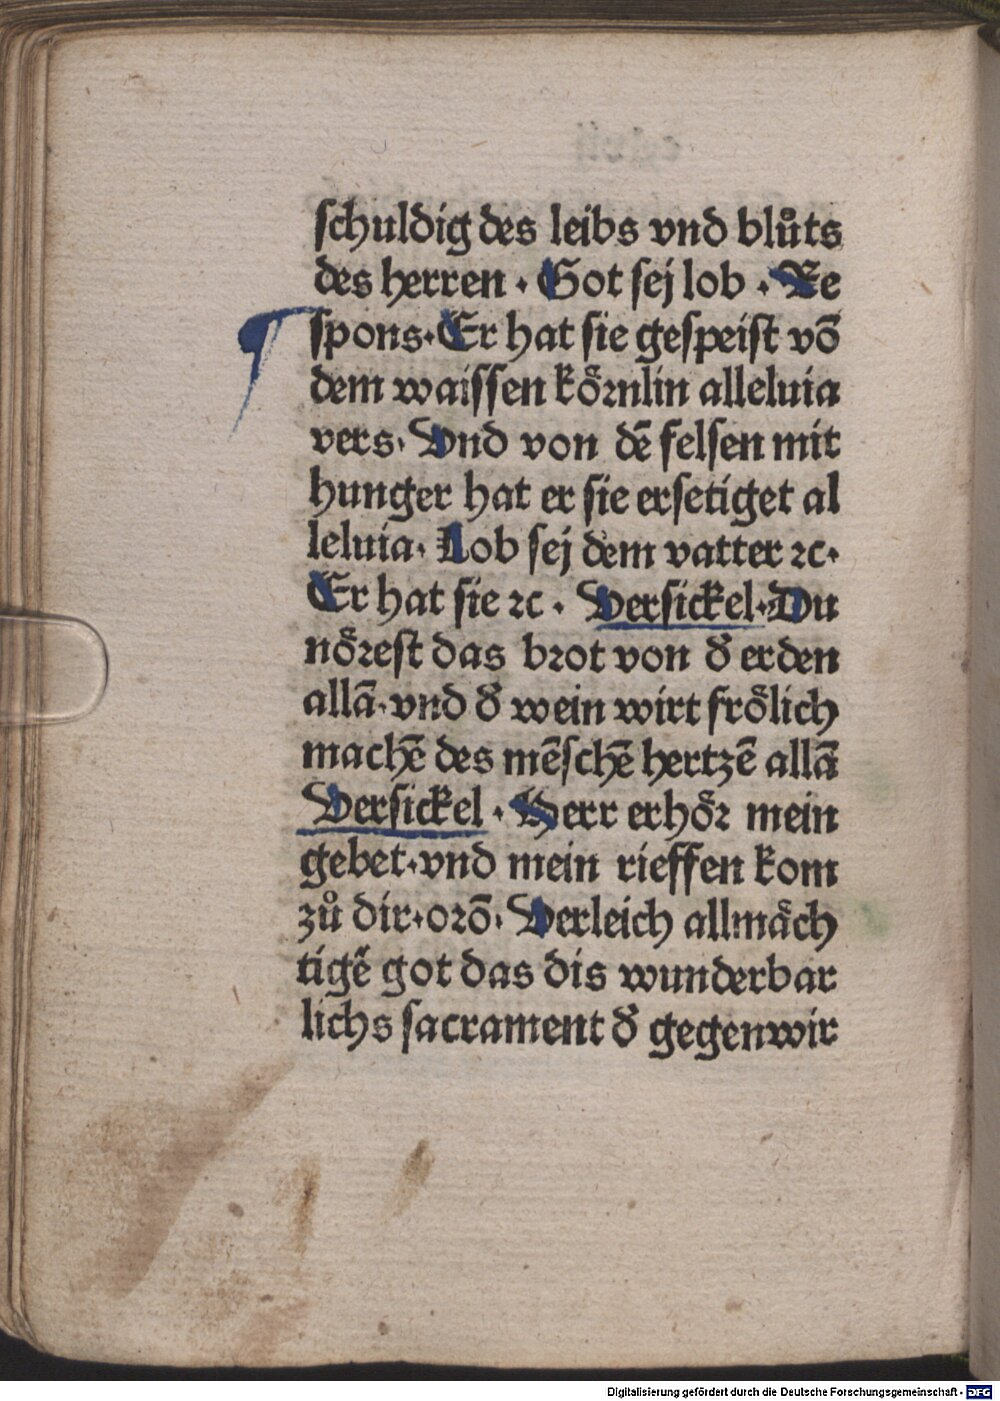 ſchuldig des leibs vnd blůts
des herren · Got ſej lob · Re
ſpons · Er hat ſie geſpeiſt võ
dem waiſſen koͤꝛnlin alleluia
vers · Vnd von dē felſen mit
hunger hat er ſie erſetiget al
leluia · Lob ſej dem vatter ꝛc·
Er hat ſie ꝛc · Verſickel · Du
noͤꝛeſt das bꝛot von d̕ erden
allā · vnd d̕ wein wirt froͤlich
machē des mēſchē hertzē allā
Verſickel · Herr erhoͤꝛ mein
gebet · vnd mein rieffen kom
zů dir · oꝛō · Verleich allmaͤch
tigē got das dis wunderbar
lichs ſacrament d̕ gegenwir
Digitalisierung gefördert durch die Deutsche Forschungsgemeinschaft - DFG